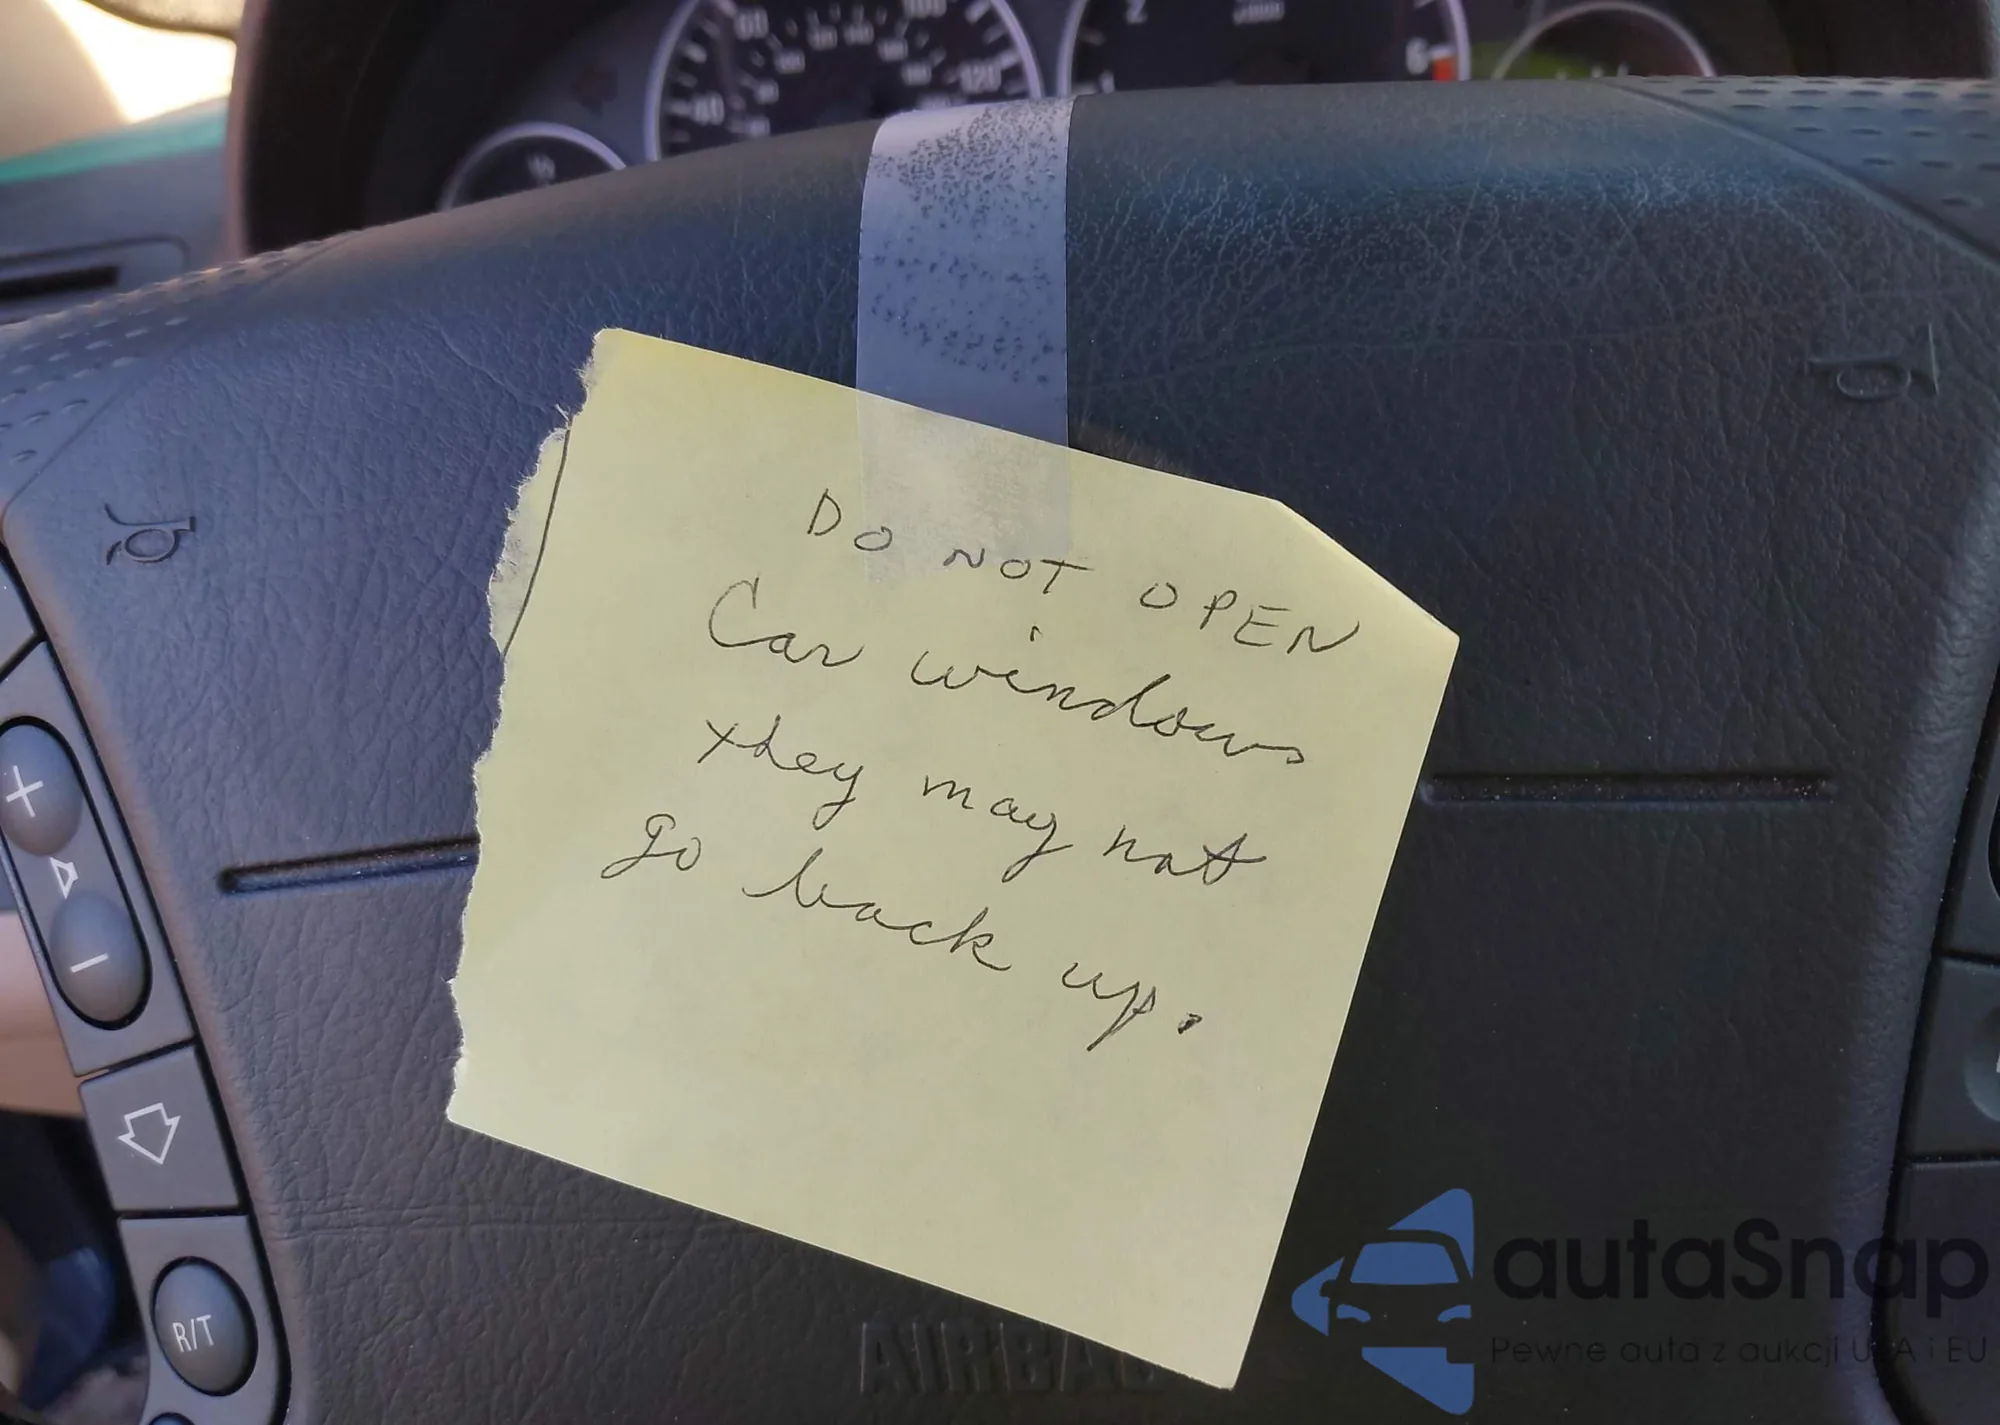 80
100
120
40
2
x1000
1
6
DO NOT OPEN
Car windows
they may not
go back up.
+
−
R/T
AIRBAG
autaSnap
Pewne auta z aukcji USA i EU